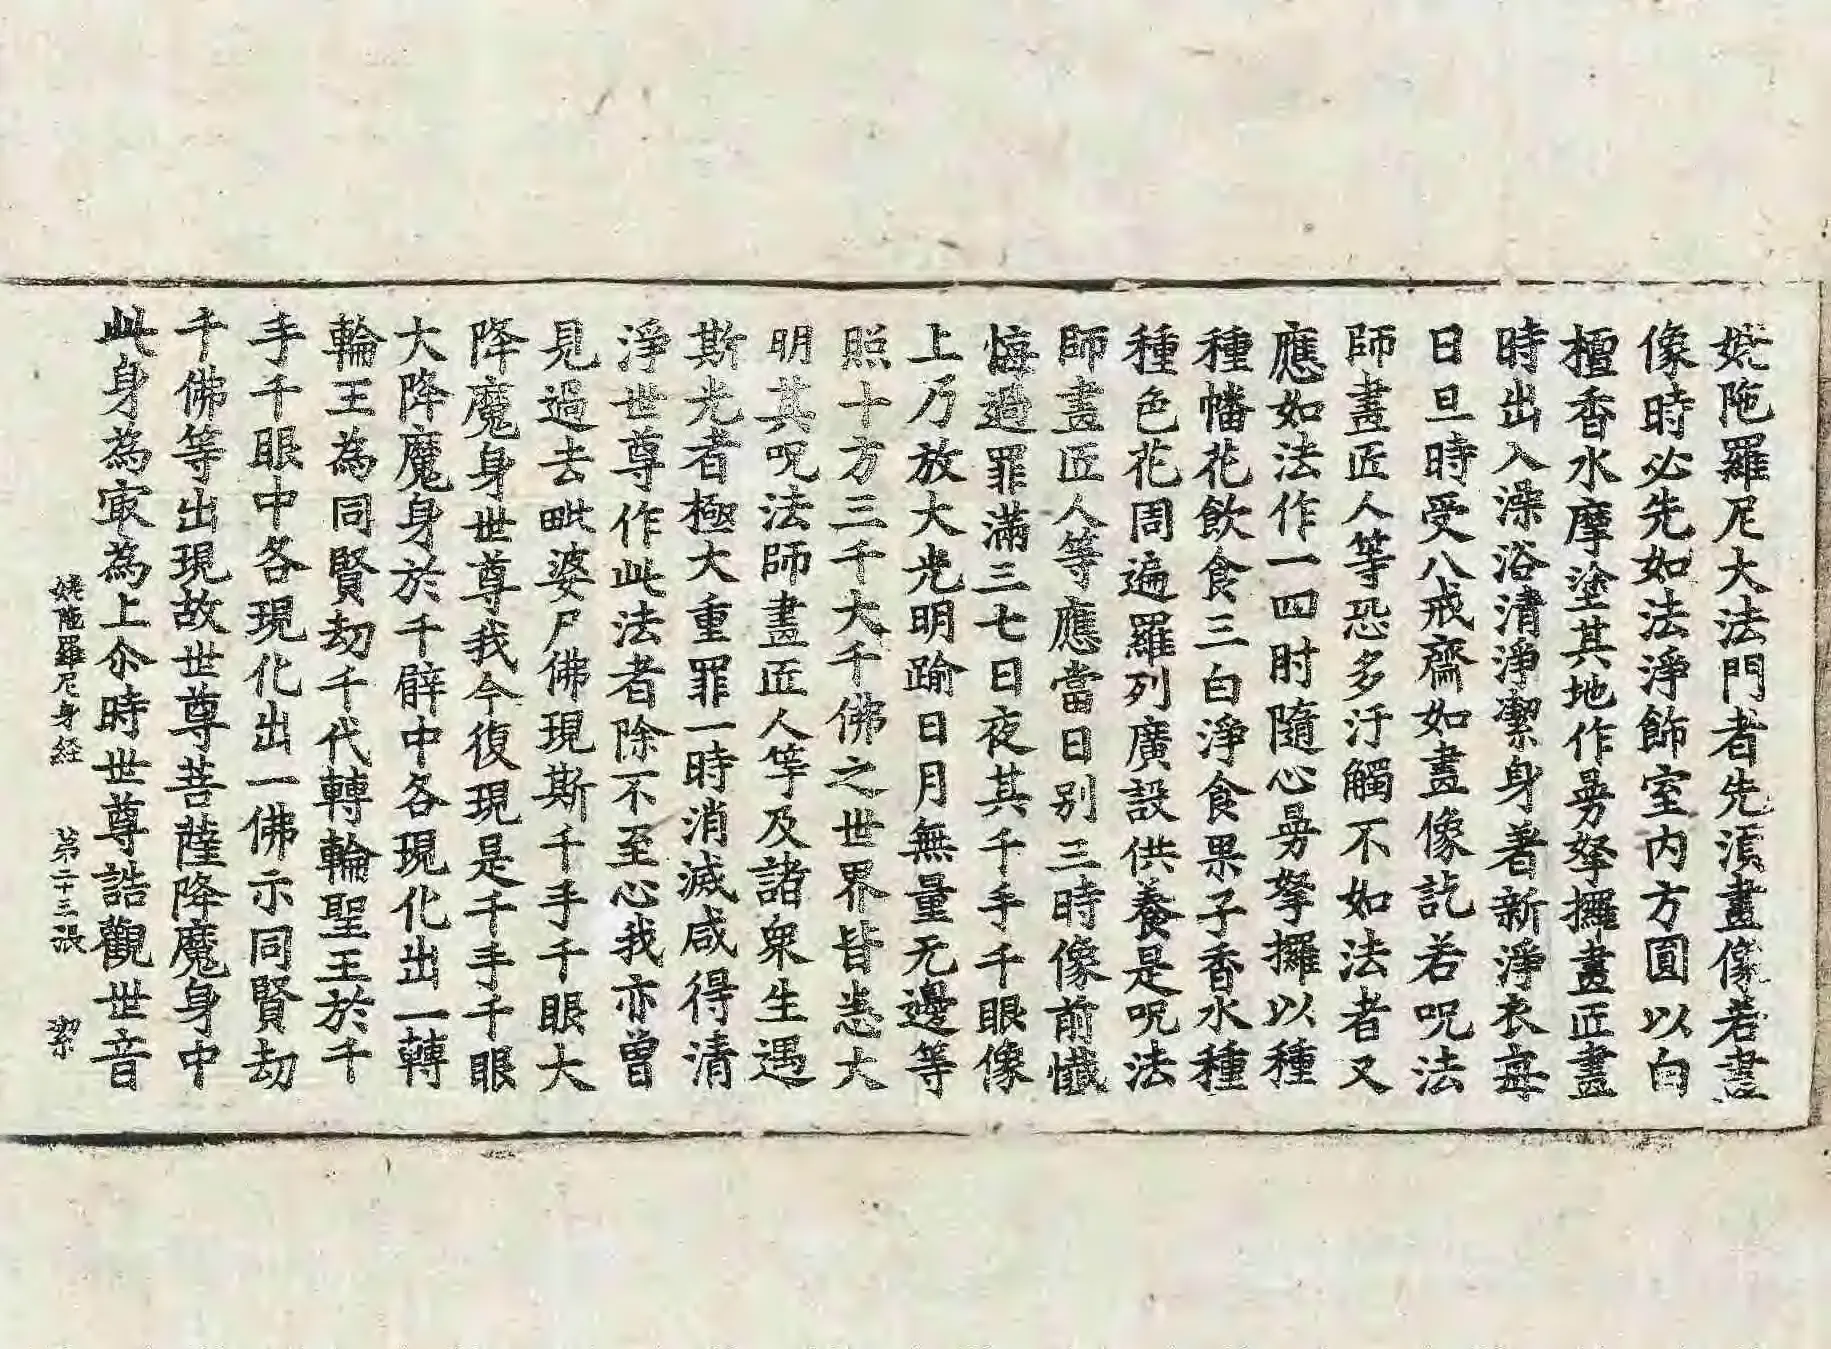 姥陁羅尼大法門者先湏畫像若畫
像時必先如法淨飾室内方圓以白
檀香水摩塗其地作曼拏攞畫匠畫
時出入澡浴清淨潔身著新淨衣每
日旦時受八戒齋如畫像訖若呪法
師畫匠人等恐多汙觸不如法者又
應如法作一四肘隨心曼拏攞以種
種幡花飲食三白淨食果子香水種
種色花周遍羅列廣設供養是呪法
師畫匠人等應當日别三時像前懺
悔過罪滿三七日夜其千手千眼像
上乃放大光明踰日月無量无邊等
照十方三千大千佛之世界皆悉大
明其呪法師畫匠人等及諸衆生遇
斯光者極大重罪一時消滅咸得清
淨世尊作此法者除不至心我亦曾
見過去毗婆尸佛現斯千手千眼大
降魔身世尊我今復現是千手千眼
大降魔身於千臂中各現化出一轉
輪王為同賢劫千代轉輪聖王於千
手千眼中各現化出一佛示同賢劫
千佛等出現故世尊菩薩降魔身中
此身為㝡為上尒時世尊誥觀世音
姥陁羅尼身経 苐二十三張 絜